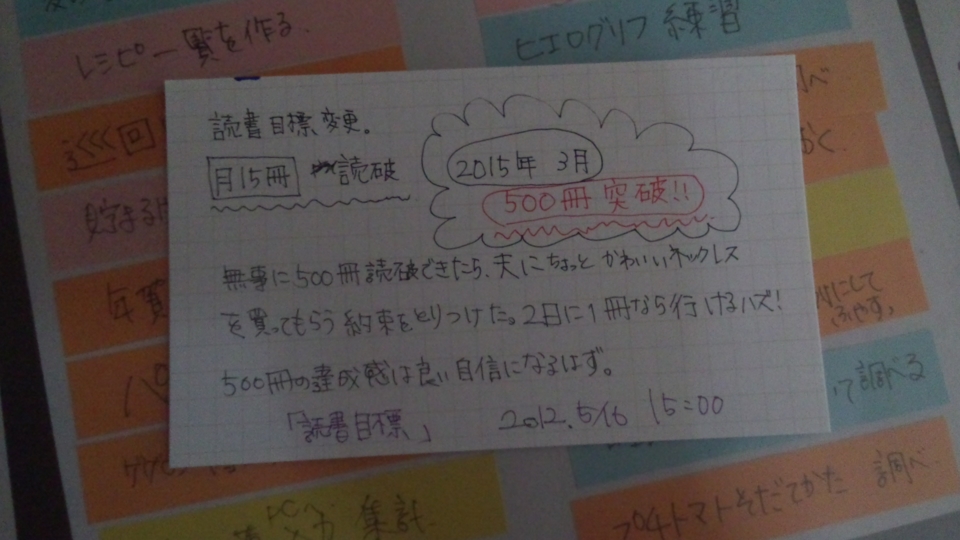 レシピ一覧を作る.
ヒエログリフ 練習
読書目標変更。
月15冊 読破
2015年 3月
500冊 突破!!
無事に500冊読破できたら、夫にちょっと かわいいネックレス
を買ってもらう約束をとりつけた。2日に1冊なら行けるハズ!
500冊の達成感は良い自信になるはず。
「読書目標」 2012.5/16 15:00
にして
ふやす。
て調べる
集計
プチトマトそだてかた 調べ